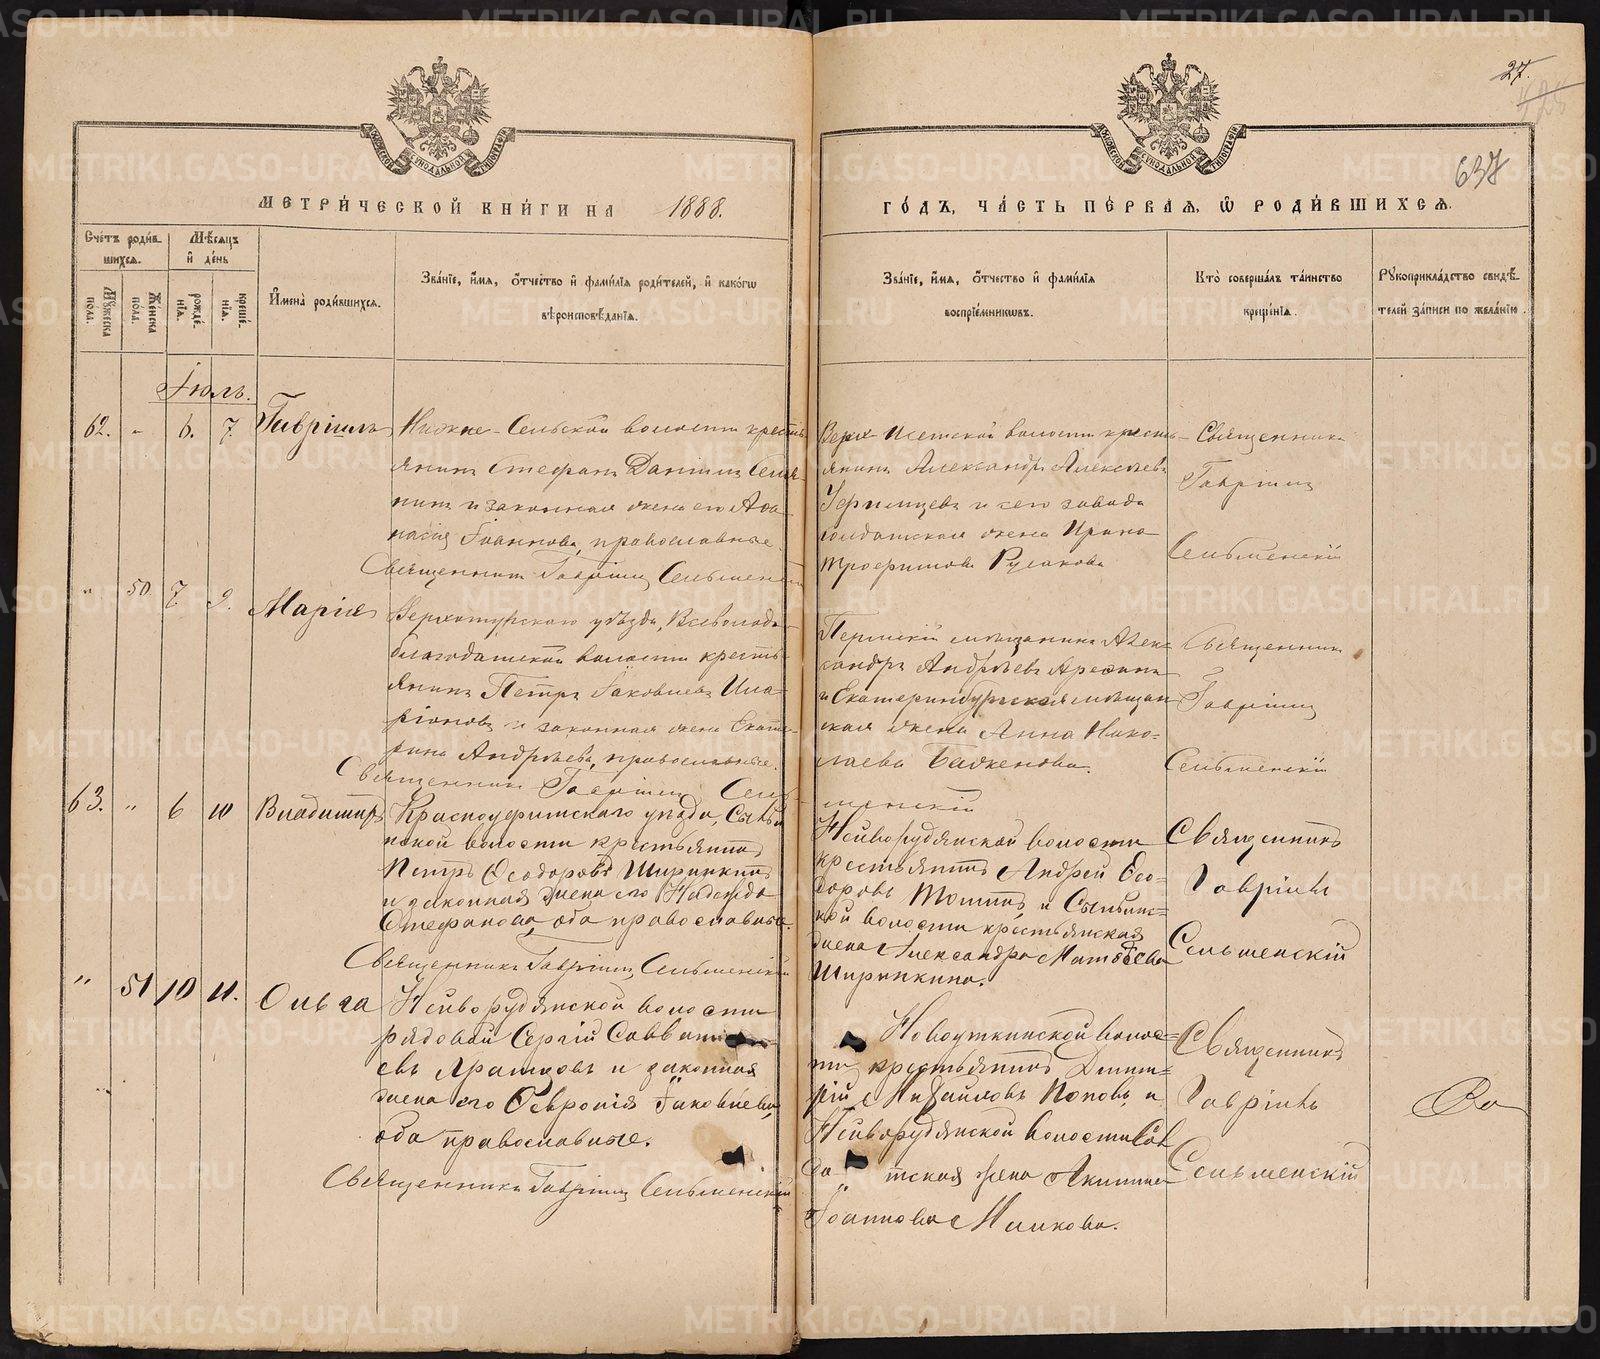 27.
637
МЕТРИ́ЧЕСКОЙ КНИ́ГИ НА 1888.
ГО́ДЪ, ЧА́СТЬ ПЕ́РВАѦ, Ѡ҆ РОДИ́ВШИХСѦ.
Сче́тъ роди́в-
шихсѧ.
Мꙋ́жеска
пола.
Же́нска
по́ла.
Мѣ́сѧцъ
и҆ де́нь
рожде́-
нїѧ.
креще́-
нїѧ.
И҆мена̀ роди́вшихсѧ.
Зва́нїе, и҆́мѧ, ѻ҆́тчество и҆ фами́лїѧ роди́телей, и҆ како́гѡ
вѣроисповѣ́данїѧ.
Зва́нїе, и҆́мѧ, ѻ҆́тчество и҆ фами́лїѧ
воспрїе́мникѡвъ.
Кто̀ соверша́лъ та́инство
креще́нїѧ.
Рꙋкоприкла́дство свидѣ́-
телей за́писи по жела́нїю.
Іюль.
62. - 6. 7. Гавріилъ
Нижне-Сельской волости кресть-
янинъ Стефанъ Даніил
и законная жена его Аѳа-
насія Іоаннова, православные.
Священникъ Гавріилъ Сельменскій
Верх-Исетской волости кресть-
янинъ Александръ Алексѣевъ
и сего завода
солдатская жена Ирина
Трофимова Русакова
Священникъ
Гавріилъ
Сельменскій
" 50. 7. 9. Марія
Верхотурскаго уѣзда, Всеволодо-
благодатской волости кресть-
янинъ Петръ Іаковлевъ Ила-
ріоновъ и законная жена Екате-
рина Андреева, православные.
Священникъ Гавріилъ Сель-
менскій
Пермскій мѣщанинъ Алек-
сандръ Андреевъ
и Екатеринбургская мѣщан-
ская жена Анна Нико-
лаева Баженова.
Священникъ
Гавріилъ
Сельменскій
63. " 6 10 Владиміръ
Красноуфимскаго уѣзда, Сылвин-
ской волости крестьянинъ
Петръ Ѳеодоровъ Ширинкинъ
и законная жена его Надежда
Стефанова, оба православные.
Священникъ Гавріилъ Сельменскій
Нейворудянской волости
крестьянинъ Андрей Ѳео-
доровъ и Сылвин-
ской волости крестьянская
жена Александра Матѳеева
Ширинкина.
Священникъ
Гавріилъ
Сельменскій
" 51 10 11. Ольга
Нейворудянской волости
рядовой Сергій Савват
евъ и законная
жена его Ѳевронія Іаковлева,
оба православные.
Священникъ Гавріилъ Сельменскій
Новоуткинской волос-
ти крестьянинъ Дмит-
рій Михайловъ Поповъ и
Нейворудянской волости сол
да тская жена Акилина
Іоаннова Малкова.
Священникъ
Гавріилъ
Сельменскій
METRIKI.GASO-URAL.RU